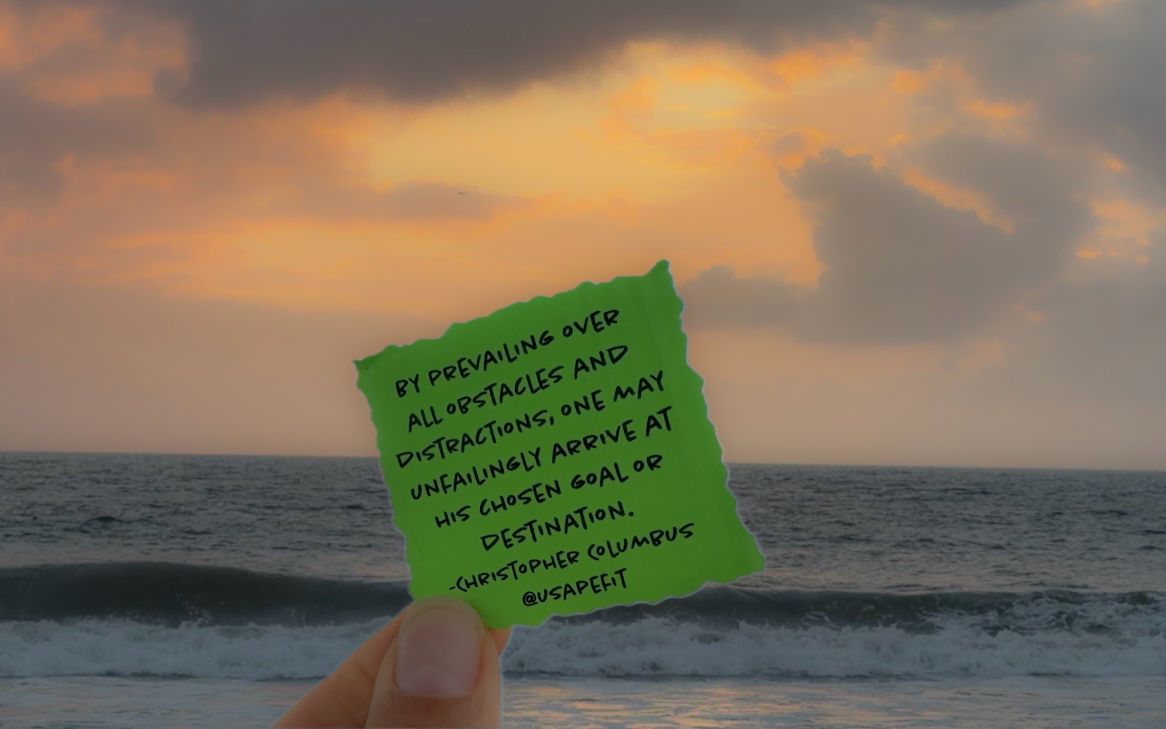 BY PREVAILING OVER
ALL OBSTACLES AND
DISTRACTIONS, ONE MAY
UNFAILINGLY ARRIVE AT
HIS CHOSEN GOAL OR
DESTINATION.
-CHRISTOPHER COLUMBUS
@USAPEEFIT